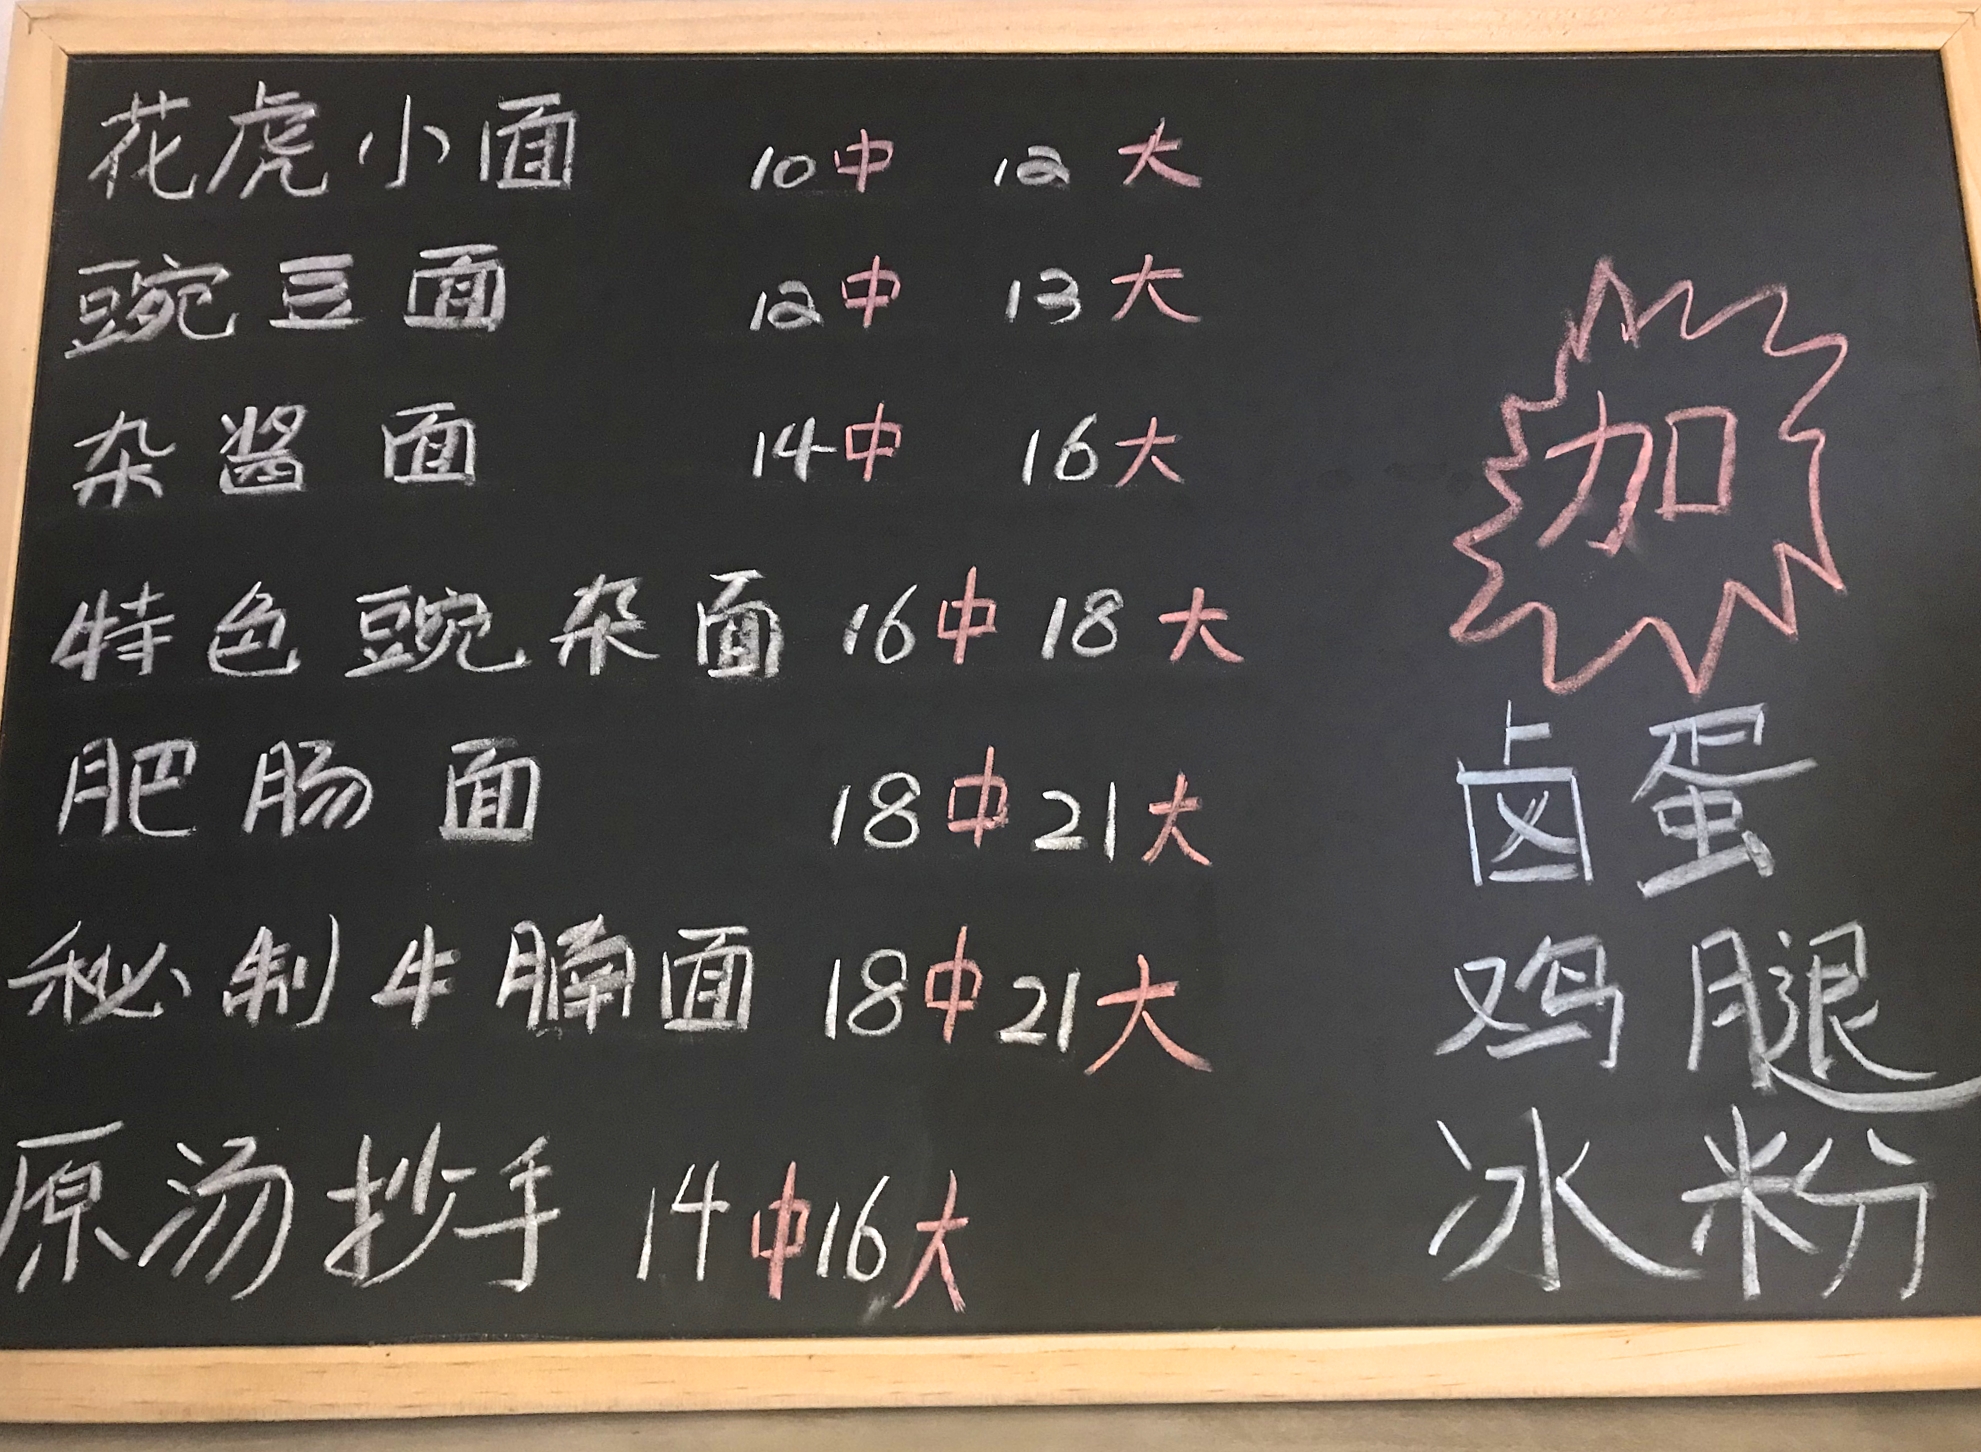 花虎小面 10中 12大
豌豆面 12中 13大
杂酱面 14中 16大
特色豌杂面 16中 18大
肥肠面 18中 21大
秘制牛腩面 18中 21大
原汤抄手 14中 16大
加
卤蛋
鸡腿
冰粉